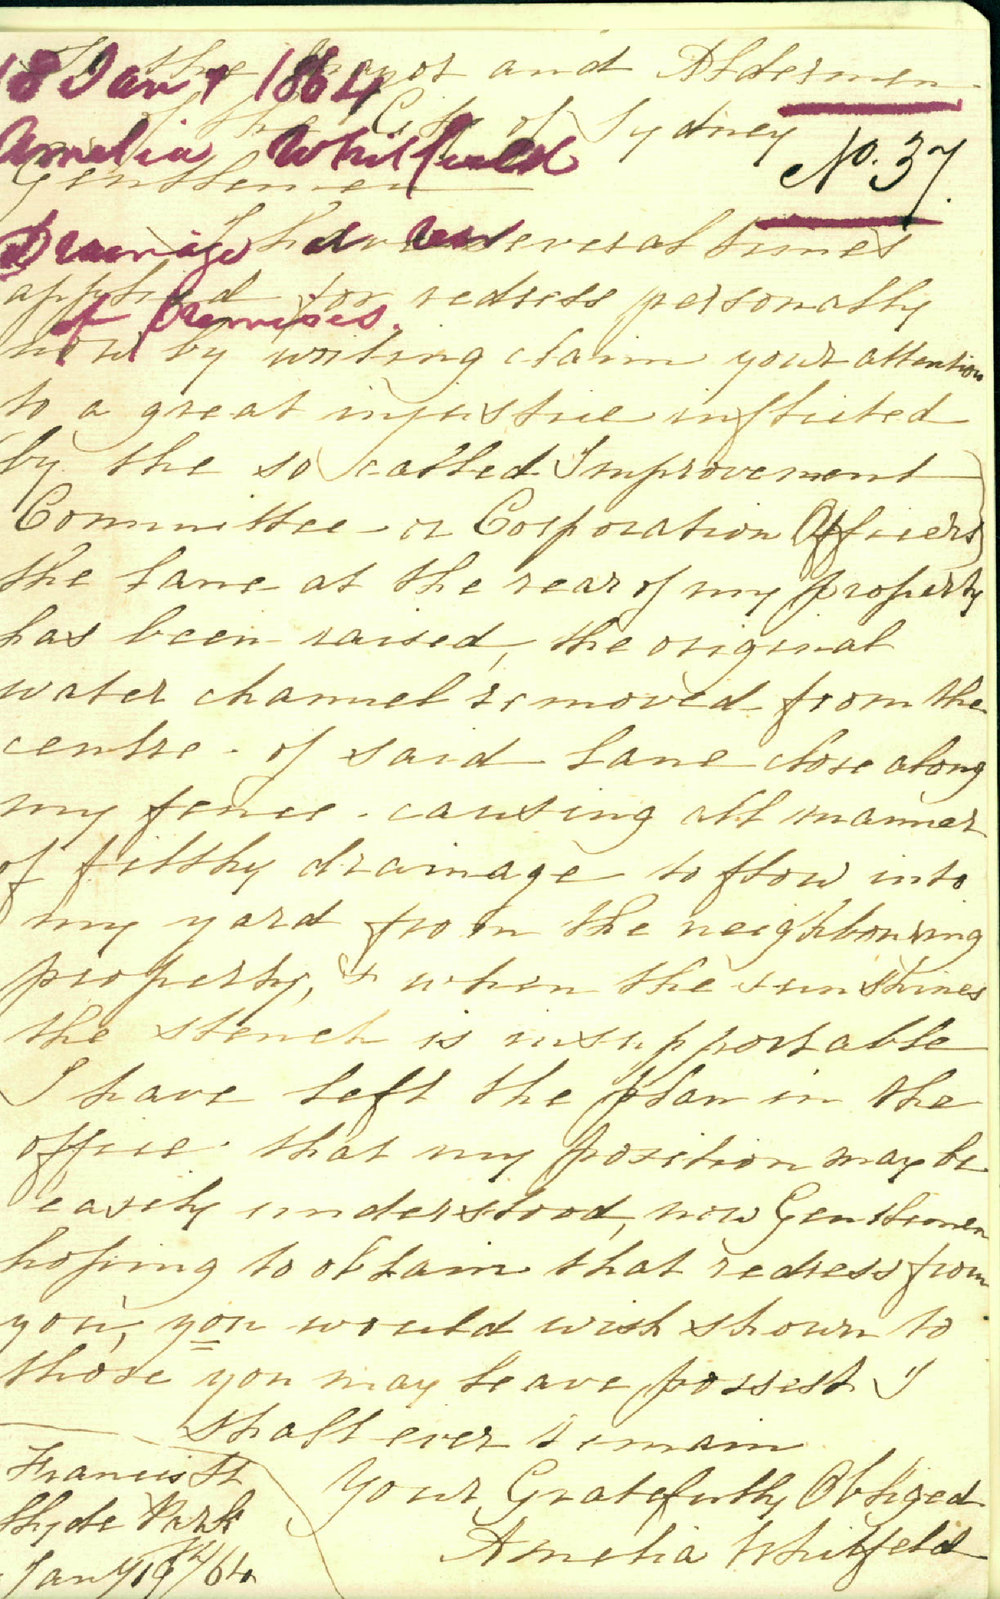 To the Mayor and Aldermen
of the City of Sydney
Gentlemen
18 Jany 1864
Amelia Whitfield
Drainage
of Premises.
No. 37.
I have several times
applied for redress personally
now by writing claim your attention
to a great injustice inflicted
by the so called Improvement
Committee or Corporation Officers
the lane at the rear of my property
has been raised, the original
water channel removed from the
centre of said lane close along
my fence. causing all manner
of filthy drainage to flow into
my yard from the neighbouring
property, & when the sun shines
the stench is insupportable
I have left the plan in the
office that my position may be
easily understood, now Gentlemen
hoping to obtain that redress from
you, you would wish shown to
those you may leave possest I
shall ever remain
Your Gratefully Obliged
Amelia Whitfield
Francis St
Hyde Park
Jany 19th/64